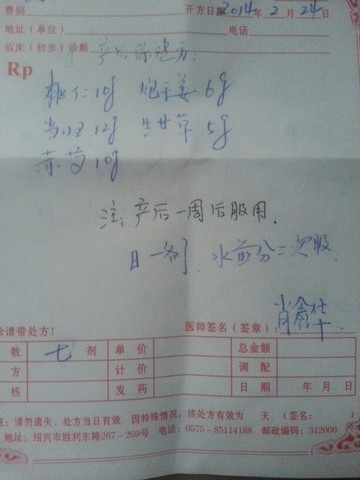 费别 开方日期 2014年2月24日
地址(单位) 电话
临床(初步)诊断 产后保健方
Rp
桃仁10g 炮干姜6g
当归12g 生甘草5g
赤芍10g
注:产后一周后服用.
日一剂,水煎分二次服
诊请带处方! 医师签名(签章)
数 七 剂 单价 总金额
方 计价 调配
核 发药 日期 年 月 日
意:请勿遗失、处方当日有效。因特殊情况,该处方有效为 天。(签名: )
地址:绍兴市胜利东路267-269号 电话:0575-85114188 邮政编码:312000